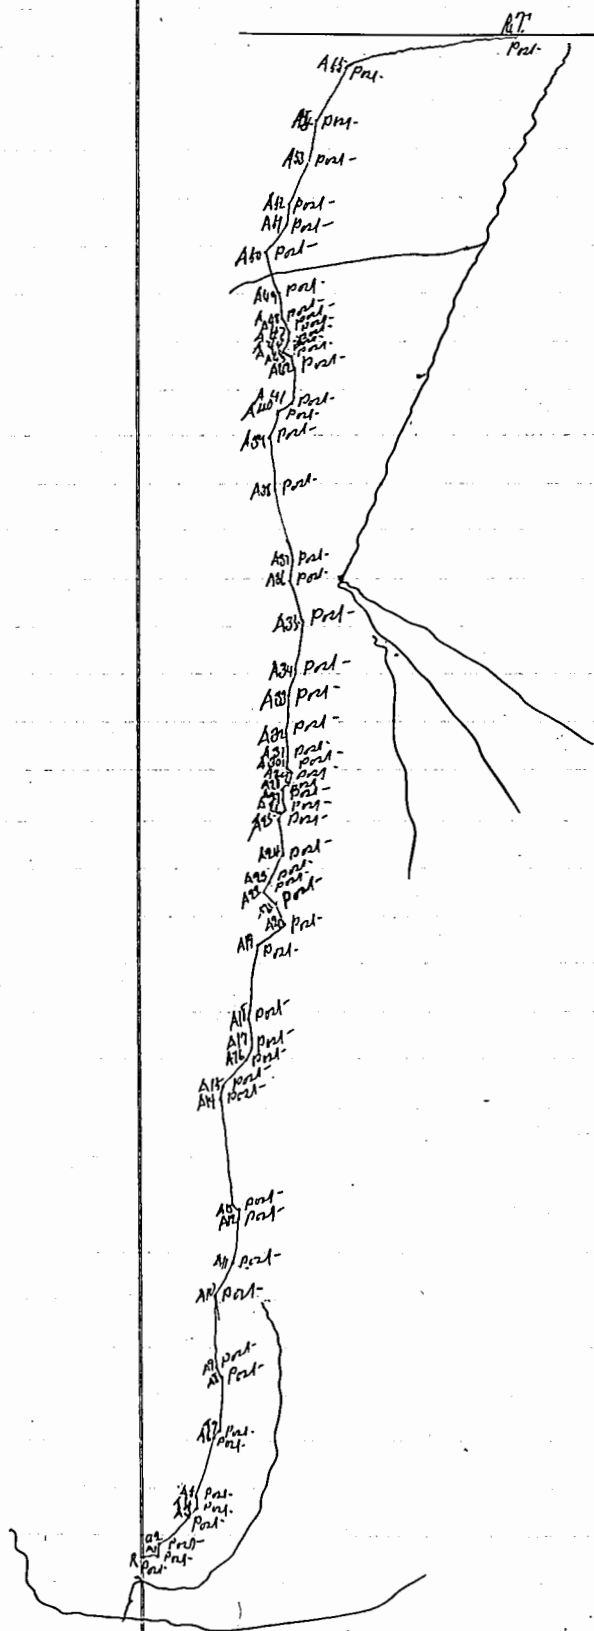 R.T.
Post-
A55 Post-
A54 Post-
A53 Post-
A52 Post-
A51 Post-
A50 Post-
A49 Post-
A48 Post-
Post-
Post-
Post-
A42 Post-
A41 Post-
A40 Post-
A39 Post-
A38 Post-
A37 Post-
A36 Post-
A35 Post-
A34 Post-
A33 Post-
A32 Post-
A31 Post-
A30 Post-
A29 Post-
A28 Post-
Post-
Post-
A25 Post-
A24 Post-
A23 Post-
A22 Post-
Post-
A20 Post-
A19 Post-
A18 Post-
A17 Post-
A16 Post-
A15 Post-
A14 Post-
A13 Post-
A12 Post-
A11 Post-
A10 Post-
A9 Post-
A8 Post-
A7 Post-
A6 Post-
Post-
Post-
Post-
A2 Post-
A1 Post-
R Post-